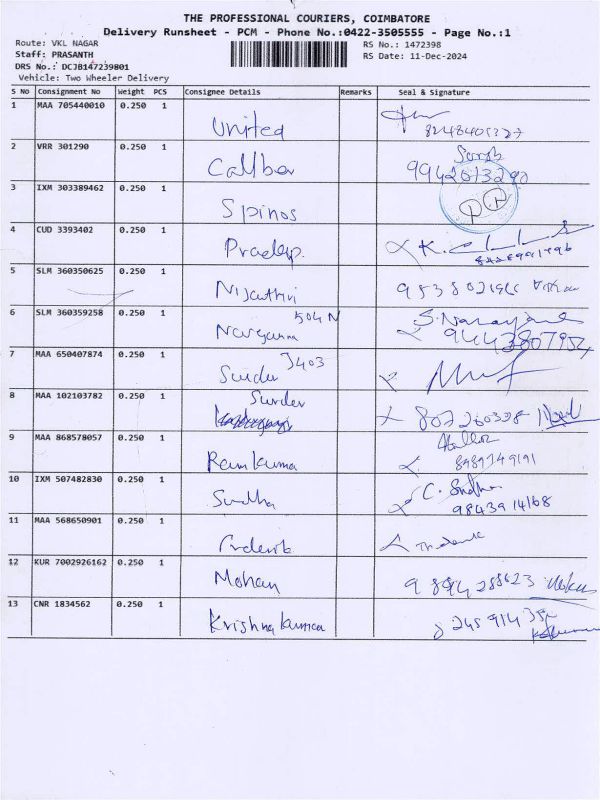 THE PROFESSIONAL COURIERS, COIMBATORE
Delivery Runsheet - PCM - Phone No.:0422-3505555 - Page No.:1
Route: VKL NAGAR
Staff: PRASANTH
DRS No.: DCJB147239801
Vehicle: Two Wheeler Delivery
RS No.: 1472398
RS Date: 11-Dec-2024
S No Consignment No Weight PCS Consignee Details Remarks Seal & Signature
1 MAA 705440010 0.250 1 United
2 VRR 301290 0.250 1 Caliber
3 IXM 303389462 0.250 1 Spinos
4 CUD 3393402 0.250 1 Pradeep.
5 SLM 360350625 0.250 1
6 SLM 360359258 0.250 1 504 N S. Narayana
9443807954
7 MAA 650407874 0.250 1 Sunder J403
8 MAA 102103782 0.250 1 Sunder
9 MAA 868578057 0.250 1 Ramkumar
10 IXM 507482830 0.250 1 Sudha C. Sudha
9843914168
11 MAA 568650901 0.250 1
12 KUR 7002926162 0.250 1 Mohan 9894288623
13 CNR 1834562 0.250 1 Krishnakumar